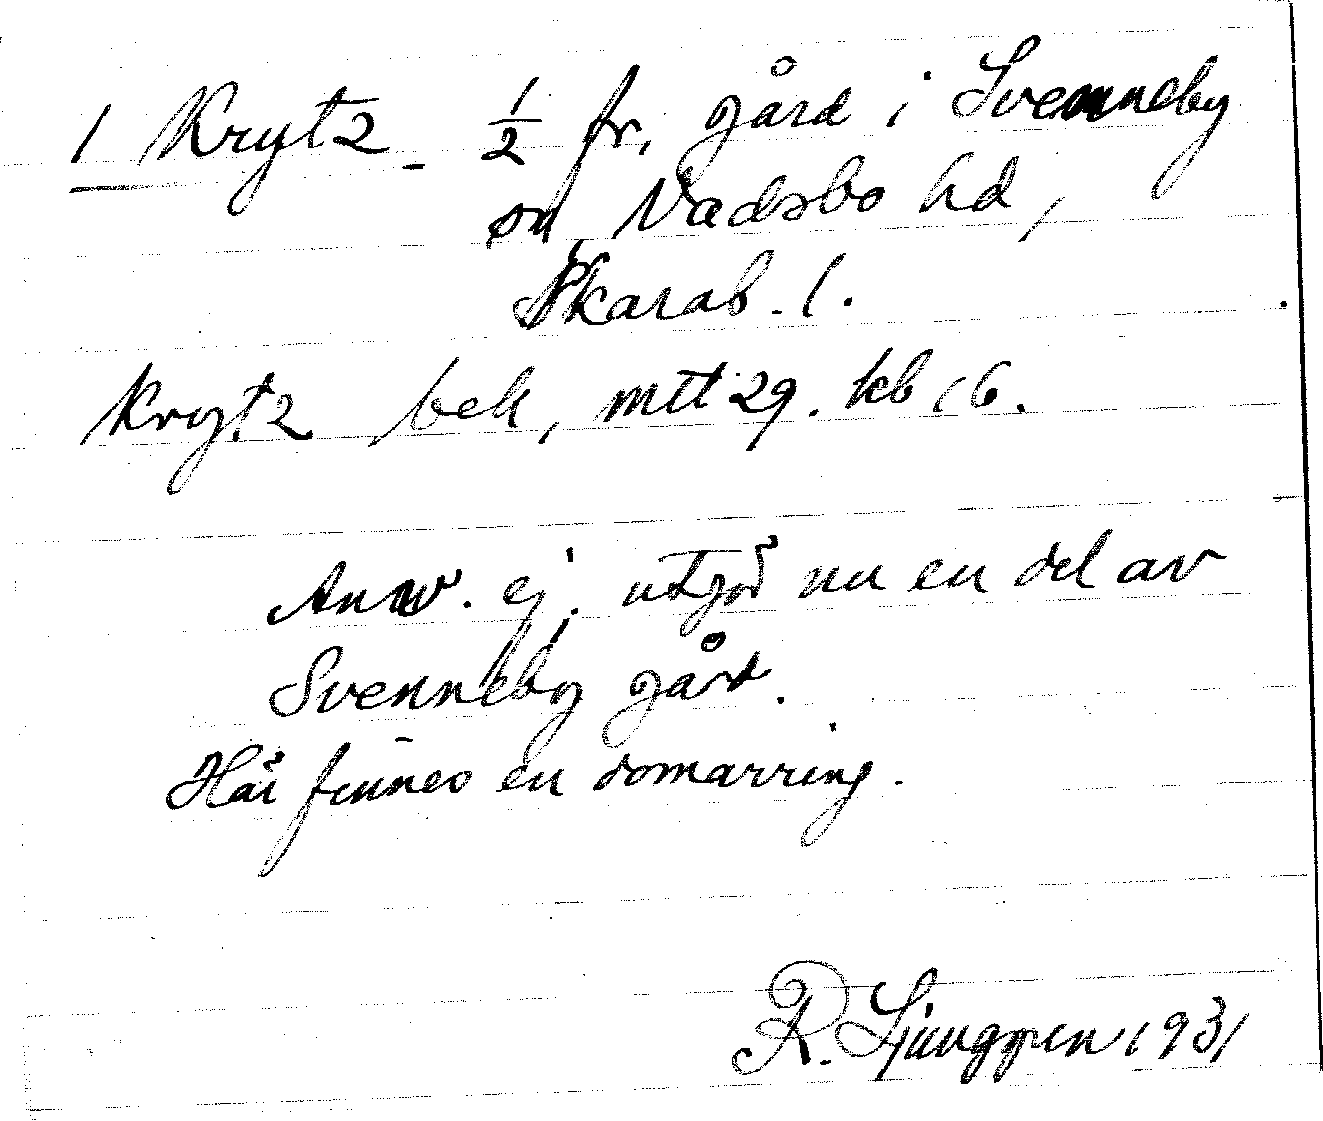 1 Krytz. 1/2 fr. gård i Svenneby
sn, Vadsbo hd,
Skarab. l.
Krytz bek, mtt 29. kb 16.
Anv. ej. utgör nu en del av
Svenneby gård.
Här finnes en domarring.
R. Ljunggren 1931